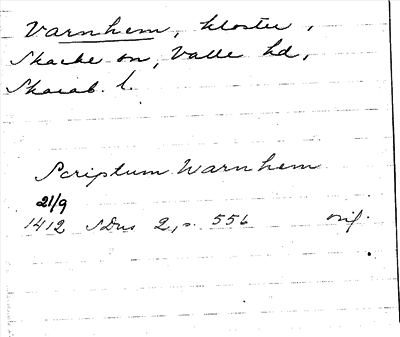 Varnhem, kloster,
Skarke sn, Valle hd,
Skarab. l.
Scriptum Warnhem
21/9
1412 SDns 2, s. 556 orig.